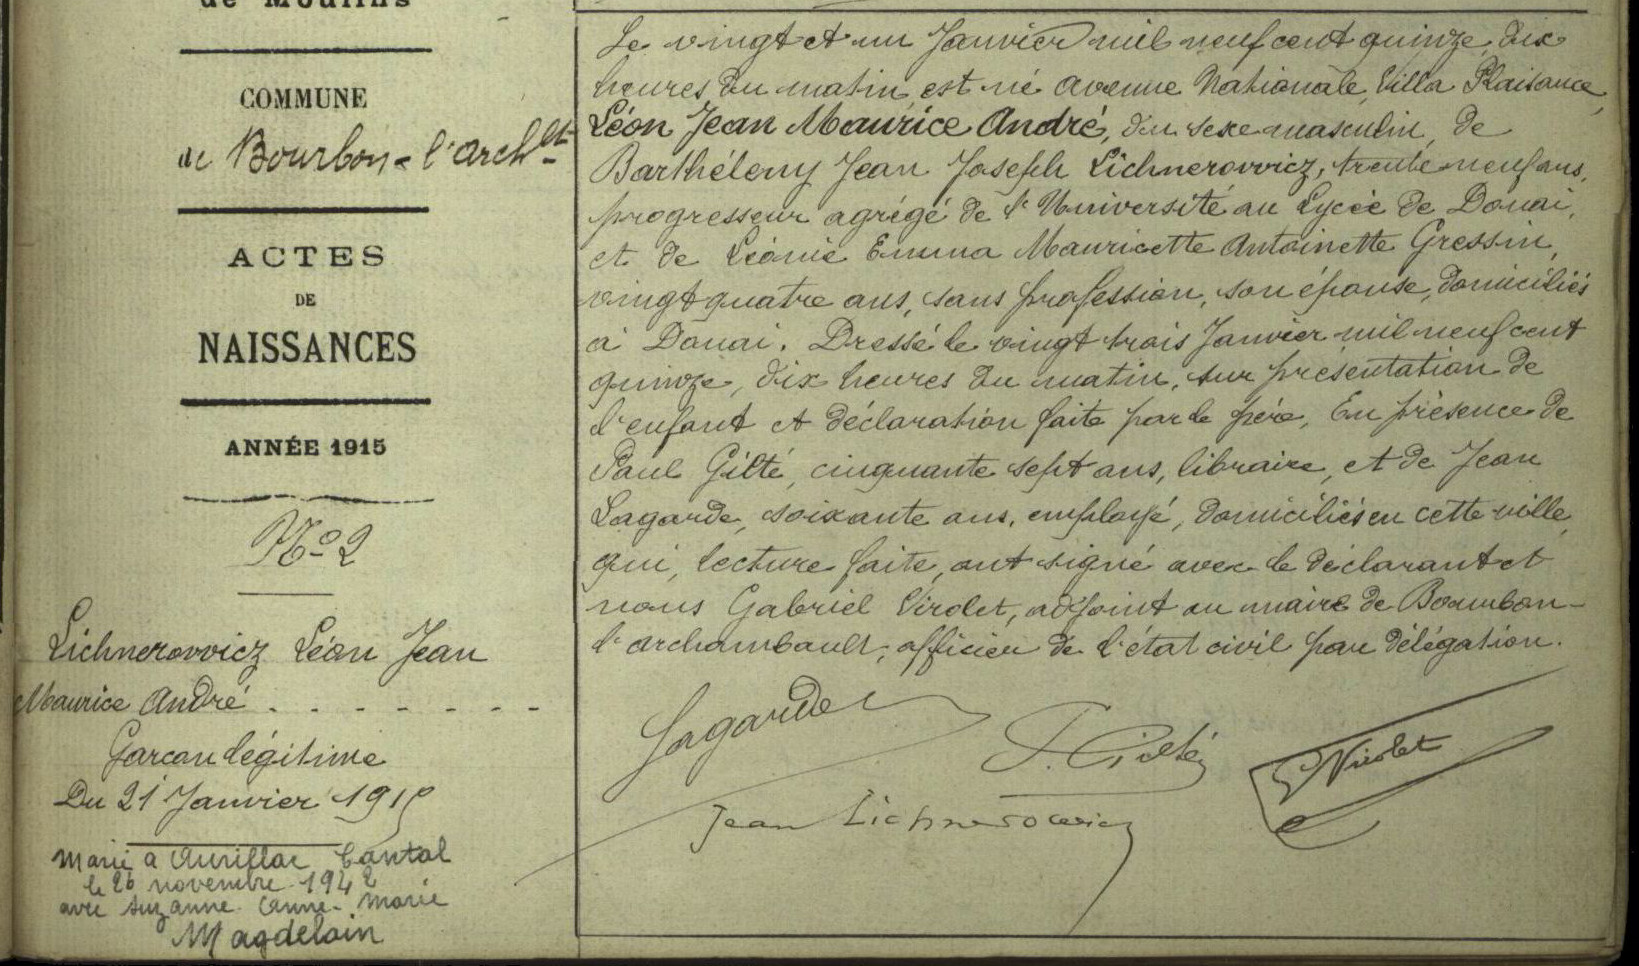 de Moulins
COMMUNE
de Bourbon-l'Archlt
ACTES
DE
NAISSANCES
ANNÉE 1915
No 2
Lichnerovvicz Léon Jean
Maurice André
Garcon légitime
Du 21 Janvier 1915
Marié à Aurillac Cantal
le 26 novembre 1942
avec Suzanne Anne-Marie
Magdelain
Le vingt et un Janvier mil neuf cent quinze, dix
heures du matin, est né avenue Nationale, Villa Plaisance,
Léon Jean Maurice André, du sexe masculin, de
Barthélemy Jean Joseph Lichnerovvicz, trente neuf ans,
progresseur agrégé de l'Université au Lycée de Douai,
et de Léonie Emma Mauricette Antoinette Gressin,
vingt quatre ans, sans profession, son épouse, domiciliés
à Douai. Dressé le vingt trois Janvier mil neuf cent
quinze, dix heures du matin, sur présentation de
l'enfant et déclaration faite par le père, En présence de
Paul Gilté, cinquante sept ans, libraire, et de Jean
Lagarde, soixante ans, employé, domiciliés en cette ville,
qui, lecture faite, ont signé avec le déclarant et
nous Gabriel Virolet, adjoint au maire de Bourbon-
l'archambault, officier de l'état civil par délégation.
Lagarde
P. Gilté
G Virolet
Jean Lichnerowicz